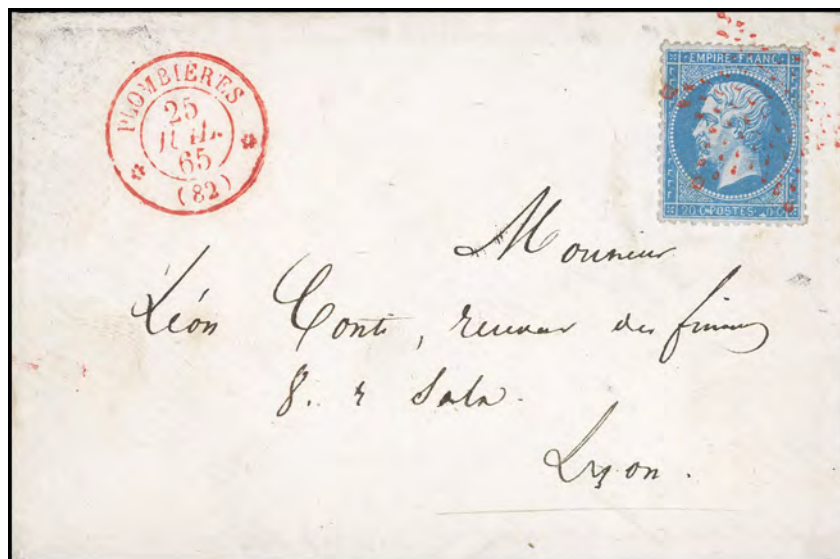 PLOMBIÈRES
25
JUIL.
65
(82)
EMPIRE FRANC.
20 C. POSTES 20 C.
Monsieur
Léon Conti, receveur des finances
8. r Sala.
Lyon.